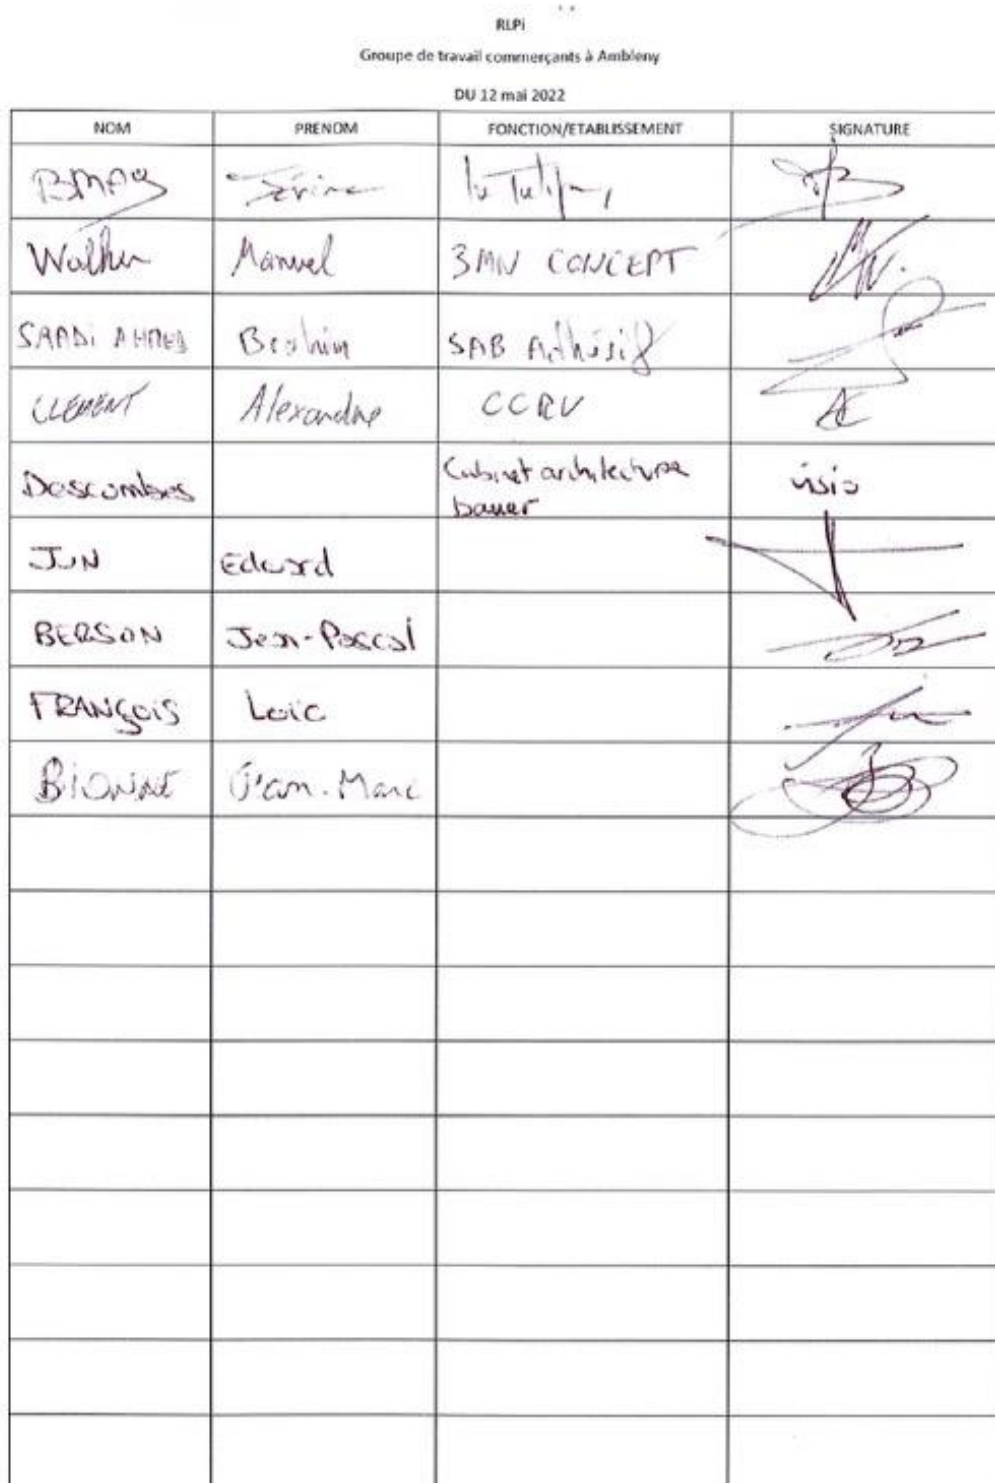 RLPi
Groupe de travail commerçants à Ambleny
DU 12 mai 2022
NOM PRENOM FONCTION/ETABLISSEMENT SIGNATURE
Manuel 3MN CONCEPT
SAADI AHMED Brahim SAB Adhésif
CLEMENT Alexandre CCRV
Descombes Cabinet architecture visio
bauer
JUN Edward
BERSON Jean-Pascal
FRANÇOIS Loïc
BIONNE Jean-Marc